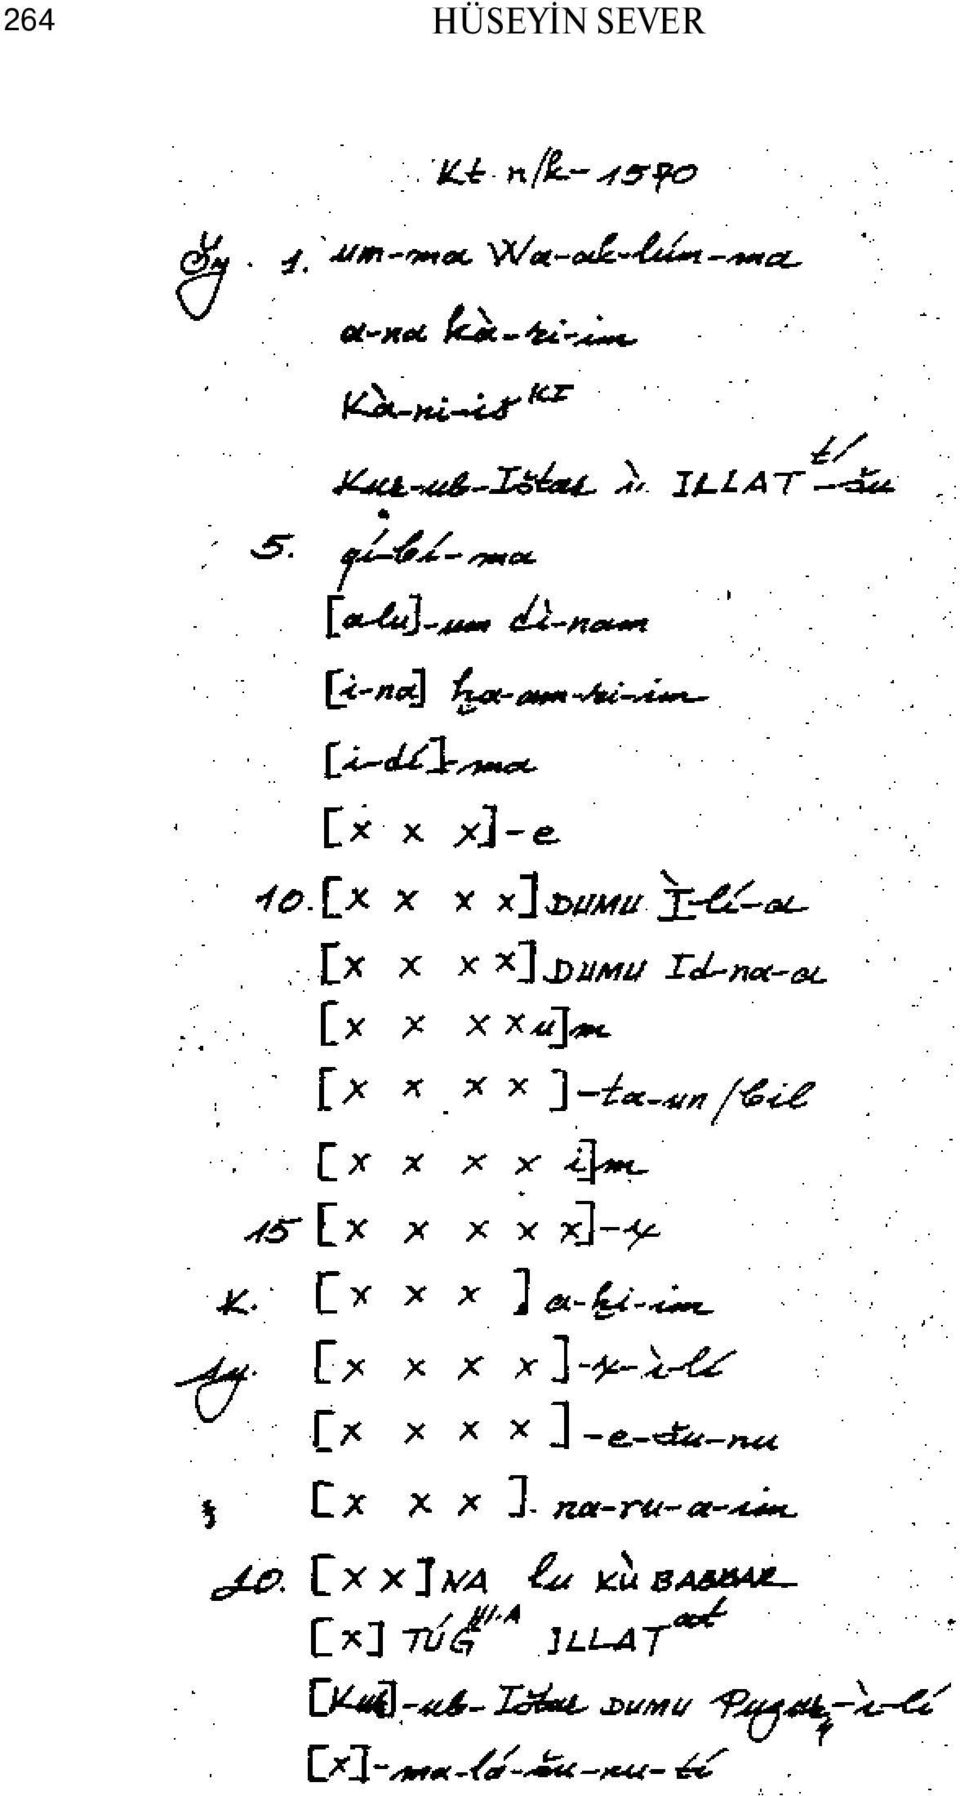 264 HÜSEYİN SEVER
Kt n/k-1570
Öy. 1. um-ma Wa-ak-lúm-ma
a-na kà-ri-im
Kà-ni-iš KI
Kur-ub-Ištar ù ILLAT tí-šu
5. qí-bí-ma
[alu]-um dì-nam
[i-na] ḫa-am-ri-im
[i-dí]-ma
[x x x]-e
10. [x x x x] DUMU Ì-lí-a
[x x x x] DUMU Id-na-a
[x x x x u]m
[x x x x]-ta-un/bil
[x x x x i]m
15 [x x x x x]-x
K. [x x x] a-ḫi-im
Ay. [x x x x]-x-ì-lí
[x x x x]-e-šu-nu
[x x x] na-ru-a-im
20. [x x] NA lu KÙ BABBAR
[x] TÚG HI.A ILLAT at
[Kur]-ub-Ištar DUMU Puzur₄-ì-lí
[x]-ma-lá-šu-nu-tí